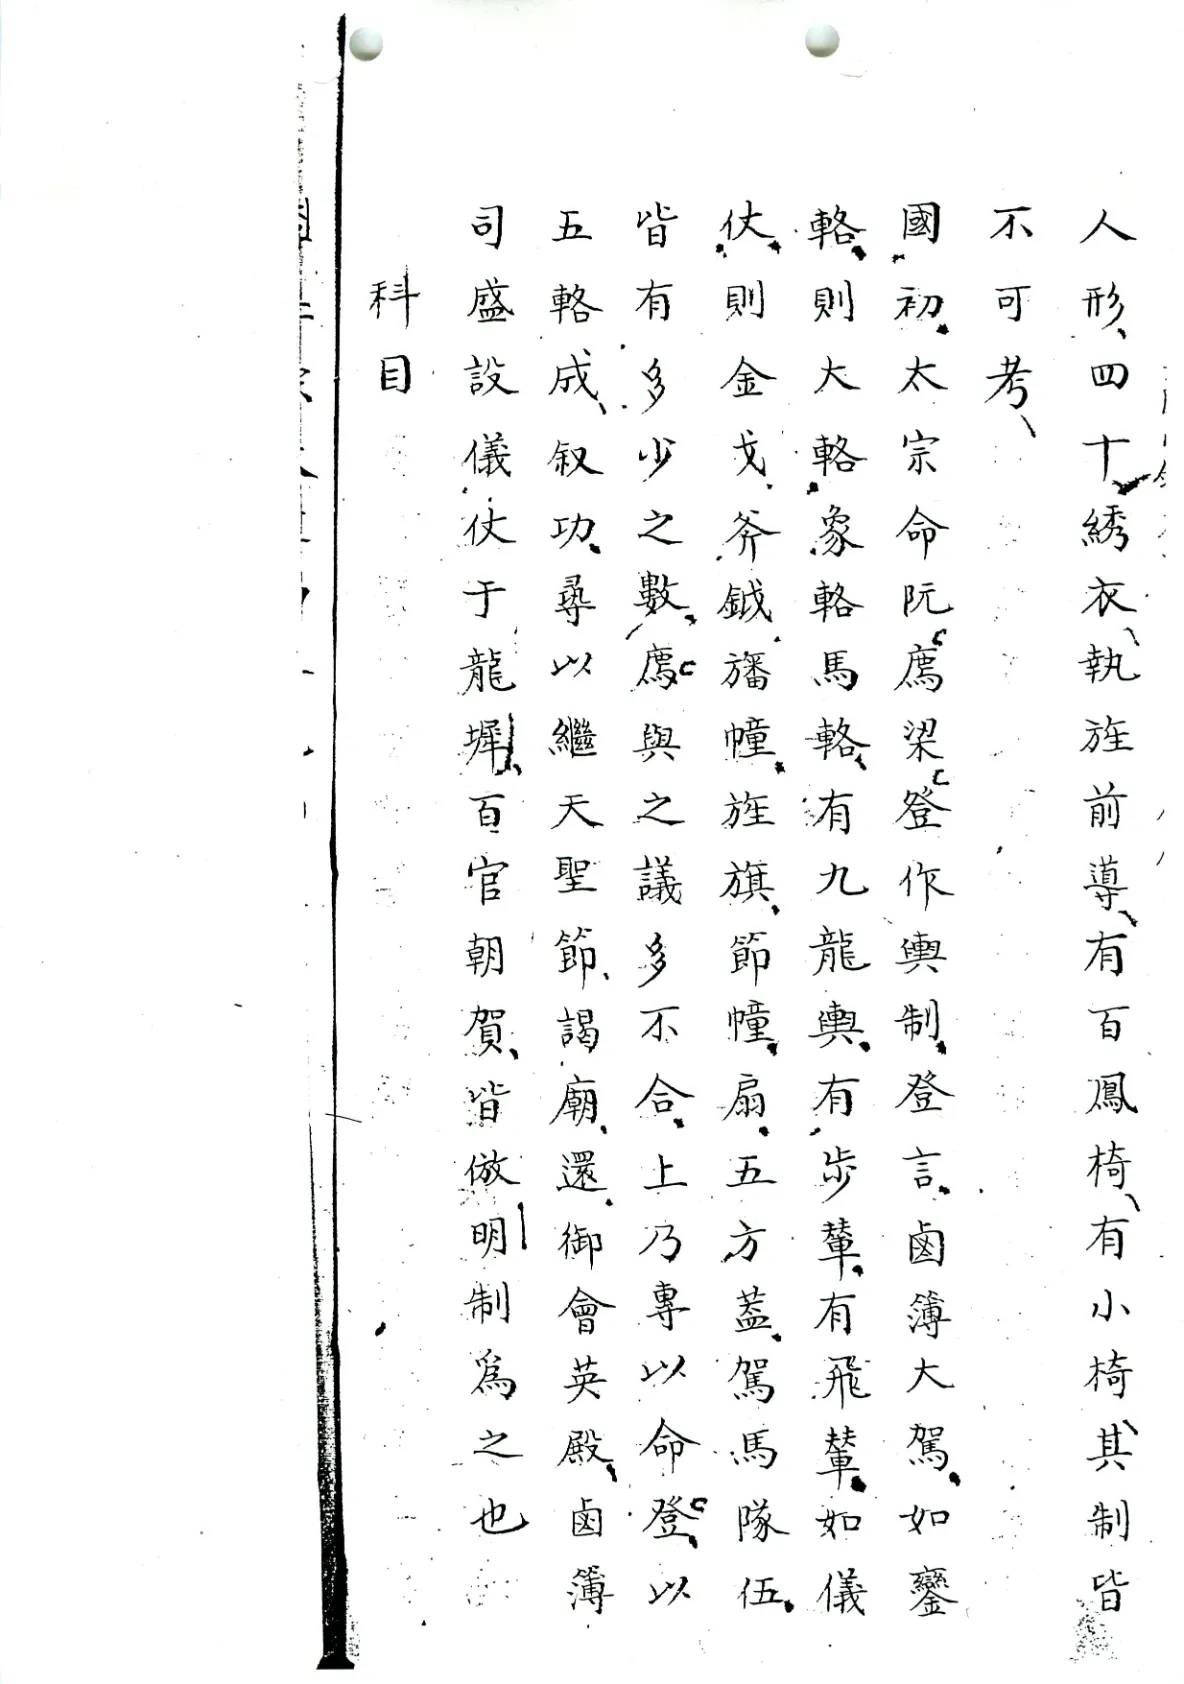 人形四十綉衣執旌前導有百鳳椅有小椅其制皆
不可考
國初太宗命阮廌梁登作輿制登言鹵簿大駕如鑾
輅則大輅象輅馬輅有九龍輿有步輦有飛輦如儀
仗則金戈斧鉞旛幢旌旗節幢扇五方蓋駕馬隊伍
皆有多少之數廌與之議多不合上乃專以命登以
五輅成叙功尋以繼天聖節謁廟還御會英殿鹵簿
司盛設儀仗于龍墀百官朝賀皆倣明制爲之也
科目